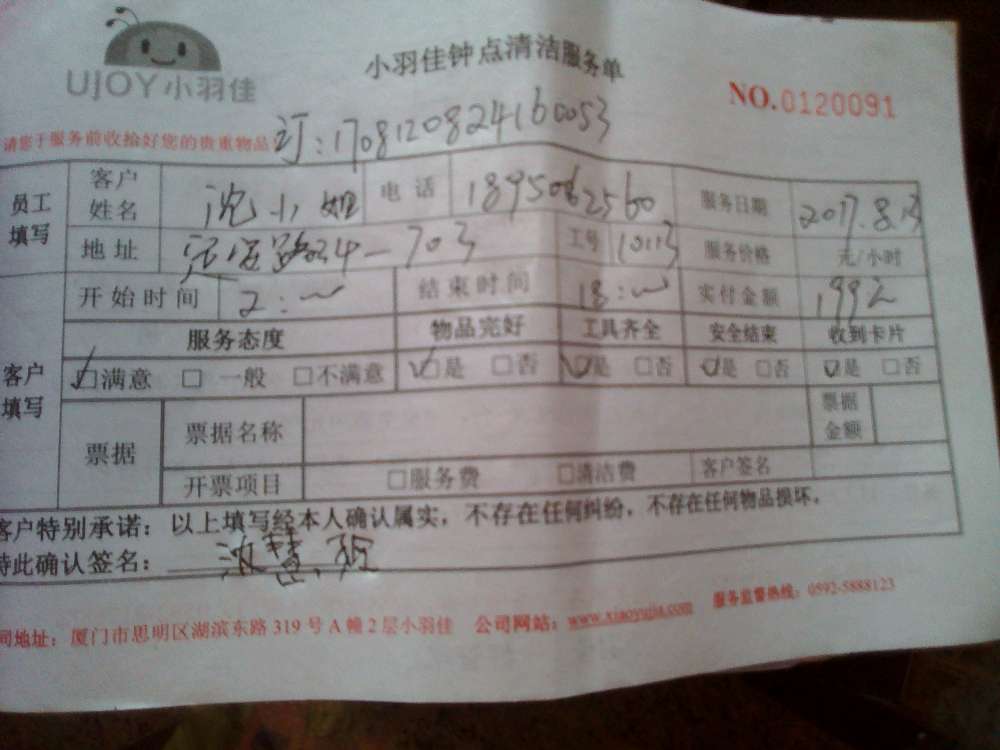 UJOY小羽佳
小羽佳钟点清洁服务单
NO.0120091
请您于服务前收拾好您的贵重物品
订:1708120824160053
员工填写 客户姓名 沈小姐 电话 18950062560 服务日期 2017.8.13
地址 34-703 工号 10113 服务价格 元/小时
开始时间 2: 结束时间 18: 实付金额 199元
客户填写 服务态度 物品完好 工具齐全 安全结束 收到卡片
☑满意 □一般 □不满意 ☑是 □否 ☑是 □否 ☑是 □否 ☑是 □否
票据 票据名称 票据金额
开票项目 □服务费 □清洁费 客户签名
客户特别承诺:以上填写经本人确认属实,不存在任何纠纷,不存在任何物品损坏。
特此确认签名:沈慧
司地址:厦门市思明区湖滨东路319号A幢2层小羽佳 公司网站:www.xiaoyujia.com 服务监督热线:0592-5888123